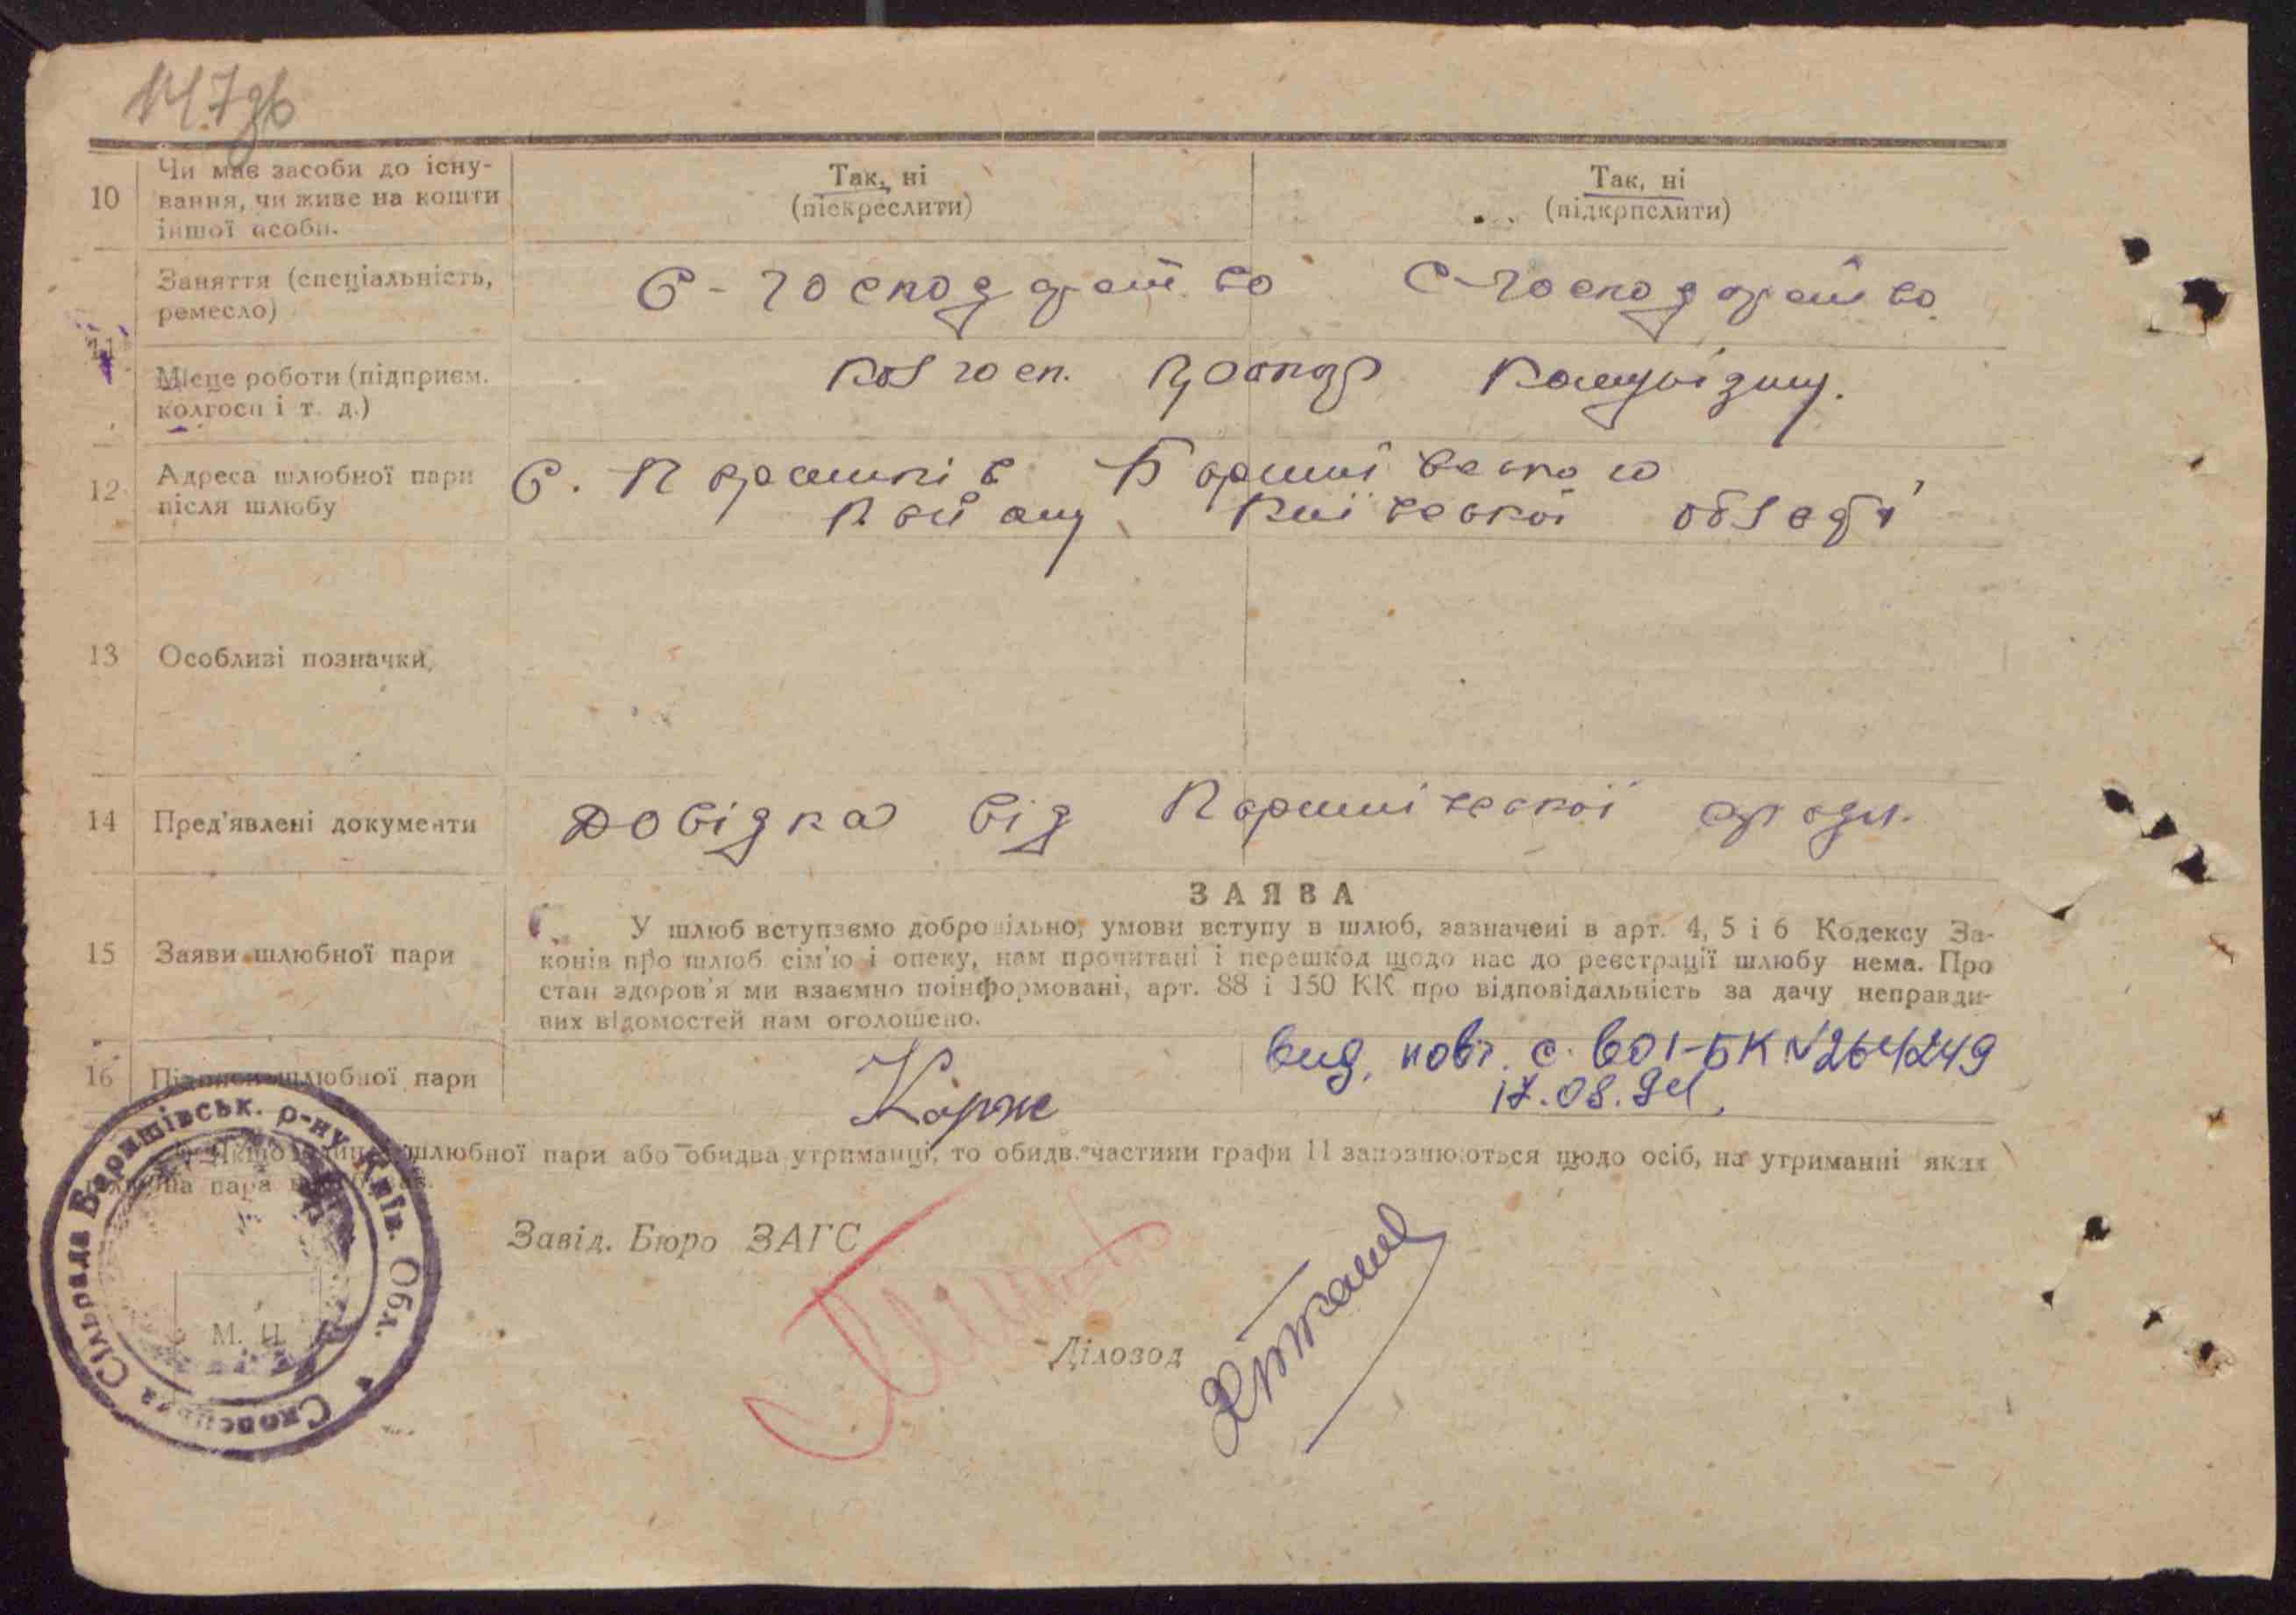 147зв
10 Чи має засоби до існу-
вання, чи живе на кошти
іншої особи.
Так, ні
(піекреслити)
Так, ні
(підкрпслити)
11
Заняття (спеціальність,
ремесло)
С-господарство С-господарство
Місце роботи (підприєм.
колгосп і т. д.)
колгосп. Комунізму.
12 Адреса шлюбної пари
після шлюбу
С. Баришівського
Району Київської
13 Особливі позначки,
14 Пред'явлені документи
Довідка від
15 Заяви шлюбної пари
ЗАЯВА
У шлюб вступаємо добровільно, умови вступу в шлюб, зазначені в арт. 4, 5 і 6 Кодексу За-
конів про шлюб сім'ю і опеку, нам прочитані і перешкод щодо нас до реєстрації шлюбу нема. Про
стан здоров'я ми взаємно поінформовані, арт. 88 і 150 КК про відповідальність за дачу неправди-
вих відомостей нам оголошено.
16 Підписи шлюбної пари
Корж
вид. повт. с. во І-БК №264249
17.08.94.
Якщо шлюбної пари або обидва утриманці, то обидв. частини графи 11 заповнюються щодо осіб, на утриманні яких
пара
Завід. Бюро ЗАГС
Діловод
М. П.
Сільрада Баришівськ. р-ну Київ. Обл.